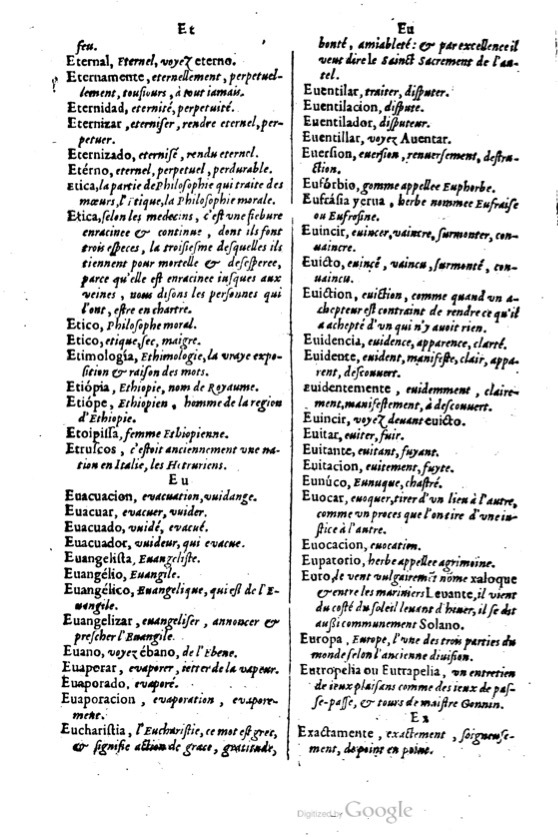 Et
feu.
Eternal, Eternel, voyez eterno.
Eternamente, eternellement, perpetuel-
lement, tousiours, à tout iamais.
Eternidad, eternité, perpetuité.
Eternizar, eterniser, rendre eternel, per-
petuer.
Eternizado, eternisé, rendu eternel.
Etérno, eternel, perpetuel, perdurable.
Etica, la partie de Philosophie qui traite des
mœurs, l'itique, la Philosophie morale.
Etica, selon les medecins, c'est vne fiebure
enracinee & continue, dont ils font
trois especes, la troisiesme desquelles ils
tiennent pour mortelle & desesperee,
parce qu'elle est enracinee iusques aux
veines, nous disons les personnes qui
l'ont, estre en chartre.
Etico, Philosophe moral.
Etico, etique, sec, maigre.
Etimología, Ethimologie, la vraye expo-
sition & raison des mots.
Etiópia, Ethiopie, nom de Royaume.
Etiópe, Ethiopien, homme de la region
d'Ethiopie.
Etoipissa, femme Ethiopienne.
Etruscos, c'estoit anciennement vne na-
tion en Italie, les Hetruriens.
Eu
Euacuacion, evacuation, vuidange.
Euacuar, evacuer, vuider.
Euacuado, vuidé, evacué.
Euacuadór, vuideur, qui evacue.
Euangelista, Euangeliste.
Euangélio, Euangile.
Euangélico, Euangelique, qui est de l'E-
uangile.
Euangelizar, euangeliser, annoncer &
prescher l'Euangile.
Euano, voyez ébano, de l'Ebene.
Euaporar, evaporer, ietter de la vapeur.
Euaporado, evaporé.
Euaporacion, evaporation, evapore-
ment.
Eucharistia, l'Eucharistie, ce mot est grec,
& signifie action de grace, gratitude,
Eu
bonté, amiableté: & par excellence il
veut dire le Sainct Sacrement de l'au-
tel.
Euentilar, traiter, disputer.
Euentilacion, dispute.
Euentilador, disputeur.
Euentillar, voyez Auentar.
Euersion, euersion, renuersement, destru-
ction.
Eufórbio, gomme appellee Euphorbe.
Eufrásia yerua, herbe nommee Eufraise
ou Eufrosine.
Euincir, euincer, vaincre, surmonter, con-
uaincre.
Euicto, euincé, vaincu, surmonté, con-
uaincu.
Euiction, euiction, comme quand vn a-
chepteur est contraint de rendre ce qu'il
a achepté d'vn qui n'y auoit rien.
Euidencia, euidence, apparence, clarté.
Euidente, euident, manifeste, clair, appa-
rent, descouuert.
Euidentemente, euidemment, claire-
ment, manifestement, à descouuert.
Euincir, voyez deuant euicto.
Euitar, euiter, fuir.
Euitante, euitant, fuyant.
Euitacion, euitement, fuyte.
Eunúco, Eunuque, chastré.
Euocar, euoquer, tirer d'vn lieu à l'autre,
comme vn proces que l'on tire d'vne iu-
stice à l'autre.
Euocacion, euocation.
Eupatorio, herbe appellee agrimoine.
Euro, le vent vulgairement nõmé xaloque
& entre les mariniers Leuante, il vient
du costé du soleil leuant d'hiuer, il se dit
aussi communement Solano.
Europa, Europe, l'vne des trois parties du
monde selon l'ancienne diuision.
Eutropelia ou Eutrapelia, vn entretien
de ieux plaisans comme des ieux de pas-
se-passe, & tours de maistre Gonnin.
Ex
Exactamente, exactement, soigneuse-
ment, de point en point.
Digitized by Google